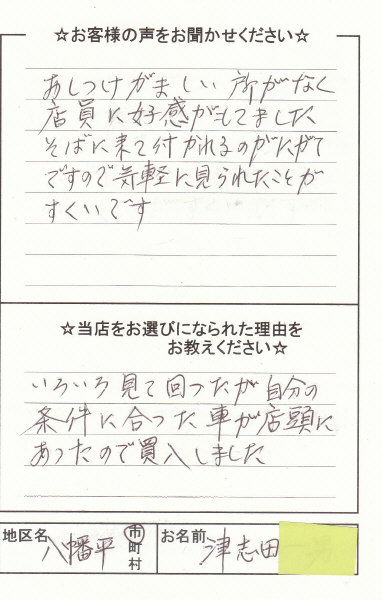 ☆お客様の声をお聞かせください☆
あしつけがましい所がなく
店員に好感がもてました
そばに来て付かれるのがにがて
ですので気軽に見られたことが
すくいです
☆当店をお選びになられた理由を
お教えください☆
いろいろ見て回ったが自分の
条件に合った車が店頭に
あったので買入しました
地区名 八幡平 市町村 お名前 津志田